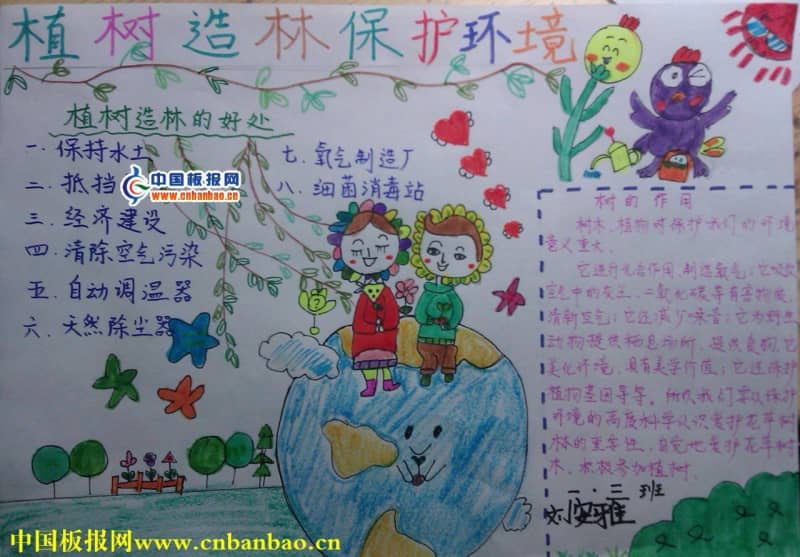 植树造林保护环境
植树造林的好处
一、保持水土
二、抵挡
三、经济建设
四、清除空气污染
五、自动调温器
六、天然除尘器
七、氧气制造厂
八、细菌消毒站
中国板报网
www.cnbanbao.cn
树的作用
树木、植物对保护我们的环境
意义重大。
它进行光合作用,制造氧气;它吸收
空气中的灰尘、二氧化碳等有害物质,
清新空气;它还减少噪音;它为野生
动物提供栖息场所,提供食物,它
美化环境,具有美学价值;它还保护
植物基因等等。所以我们要从保护
环境的高度科学认识爱护花草树
林的重要性,自觉地爱护花草树
木,积极参加植树。
一·三 班
刘安雅
中国板报网www.cnbanbao.cn